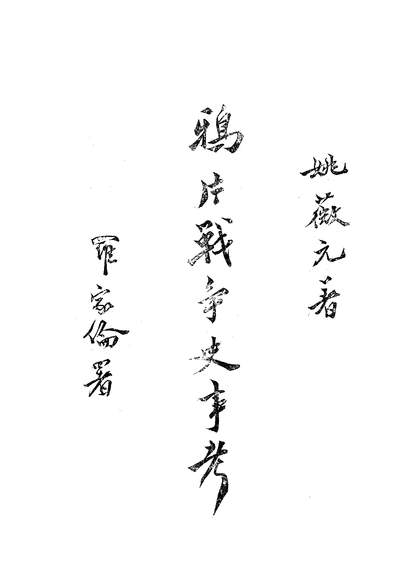 姚薇元著
鴉片戰爭史事考
羅家倫署